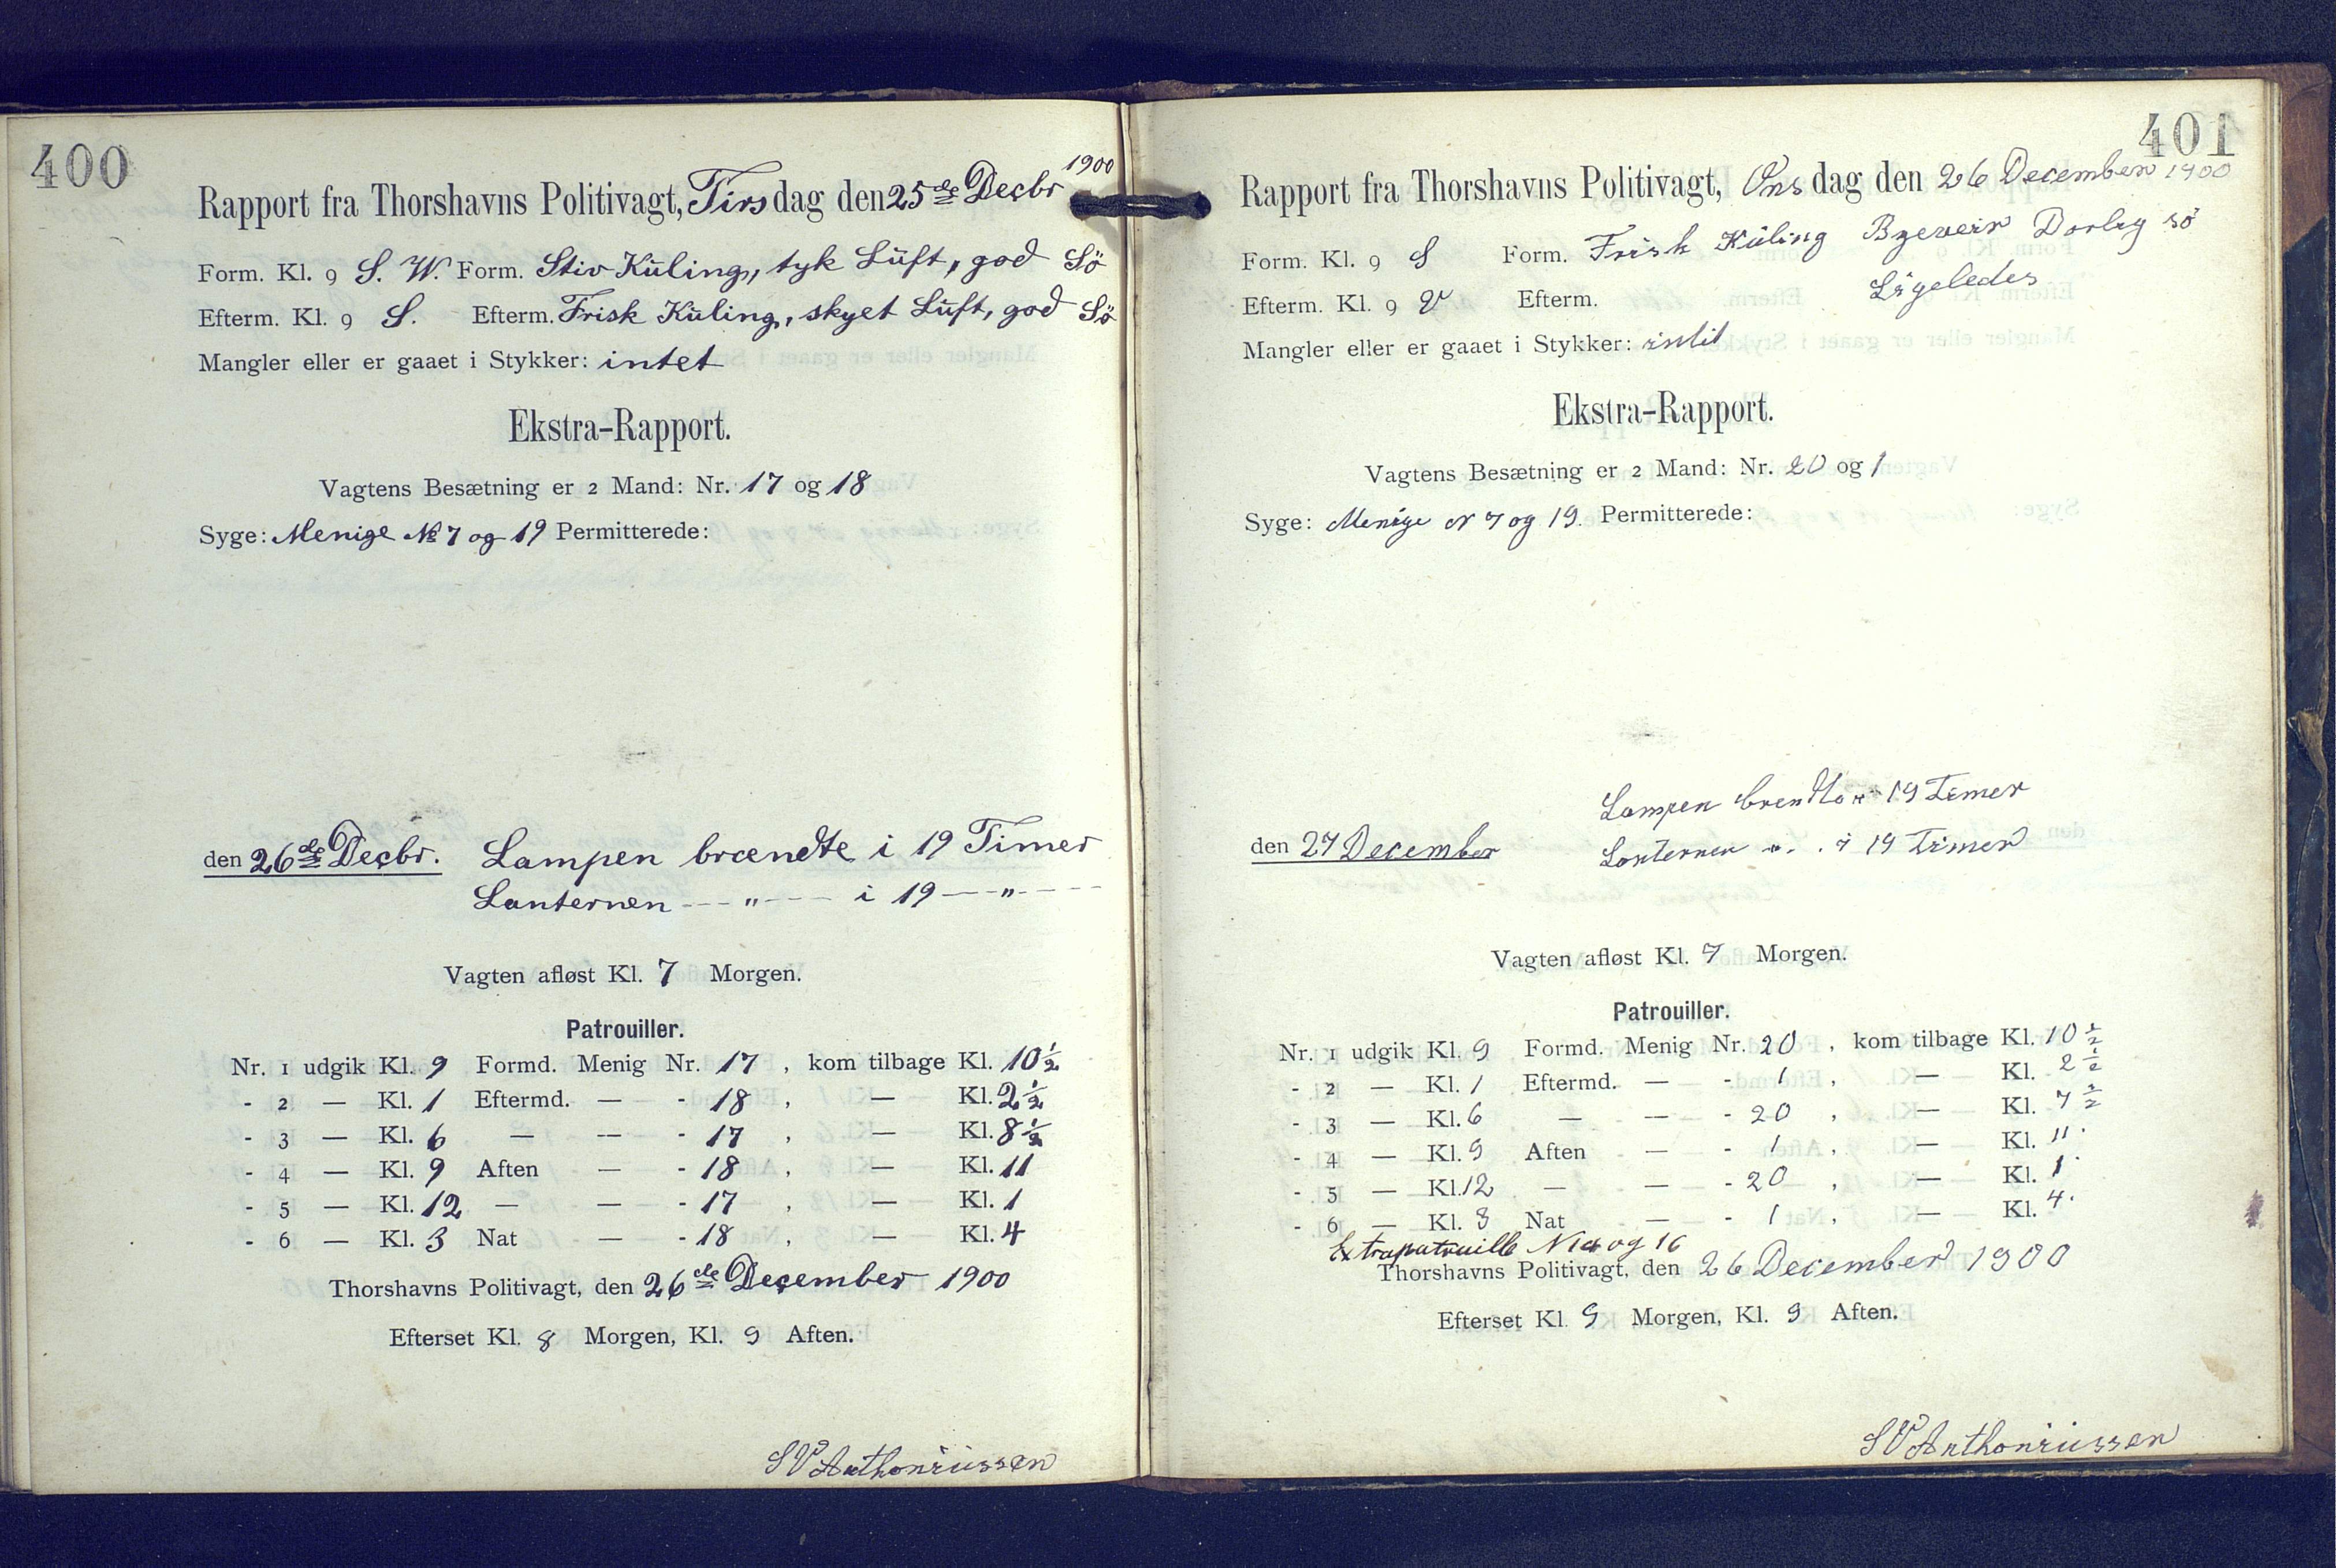 400
Rapport fra Thorshavns Politivagt, Tirsdag den 25de Decbr 1900
Form. Kl. 9 S. W. Form. Stiv Küling, tyk Lüft, god Sö
Efterm. Kl. 9 S. Efterm. Frisk Küling, skyet Lüft, god Sö
Mangler eller er gaaet i Stykker: intet
Ekstra-Rapport.
Vagtens Besætning er 2 Mand: Nr. 17 og 18
Syge: Menige № 7 og 19 Permitterede:
den 26de Decbr. Lampen brændte i 19 Timer
Lanternen --- " --- i 19 — " ----
Vagten afløst Kl. 7 Morgen.
Patrouiller.
Nr. 1 udgik Kl. 9 Formd. Menig Nr. 17 , kom tilbage Kl. 10 ½
- 2 — Kl. 1 Eftermd. — - 18 , — Kl. 2 ½
- 3 — Kl. 6 — — - 17 , — Kl. 8 ½
- 4 — Kl. 9 Aften — - 18 , — Kl. 11
- 5 — Kl. 12 — — - 17 , — Kl. 1
- 6 — Kl. 3 Nat — - 18 , — Kl. 4
Thorshavns Politivagt, den 26de December 1900
Efterset Kl. 8 Morgen, Kl. 9 Aften.
SV Anthoniüssen
401
Rapport fra Thorshavns Politivagt, Onsdag den 26 December 1900
Form. Kl. 9 S Form. Frisk Küling Byeveir Dorlig sö
Efterm. Kl. 9 V Efterm. Ligeledes
Mangler eller er gaaet i Stykker: intit
Ekstra-Rapport.
Vagtens Besætning er 2 Mand: Nr. 20 og 1
Syge: Menige N 7 og 19. Permitterede:
Lampen 19 Timer
den 27 December Lanternen " i 19 Timer
Vagten afløst Kl. 7 Morgen.
Patrouiller.
Nr. 1 udgik Kl. 9 Formd. Menig Nr. 20 , kom tilbage Kl. 10 ½
- 2 — Kl. 1 Eftermd. — - 1 , — Kl. 2 ½
- 3 — Kl. 6 — — - 20 , — Kl. 7 ½
- 4 — Kl. 9 Aften — - 1 , — Kl. 11
- 5 — Kl. 12 — — - 20 , — Kl. 1
- 6 — Kl. 3 Nat — - 1 , — Kl. 4
Extrapatruille og 16
Thorshavns Politivagt, den 26 December 1900
Efterset Kl 9 Morgen, Kl. 9 Aften.
SV Anthoniussen